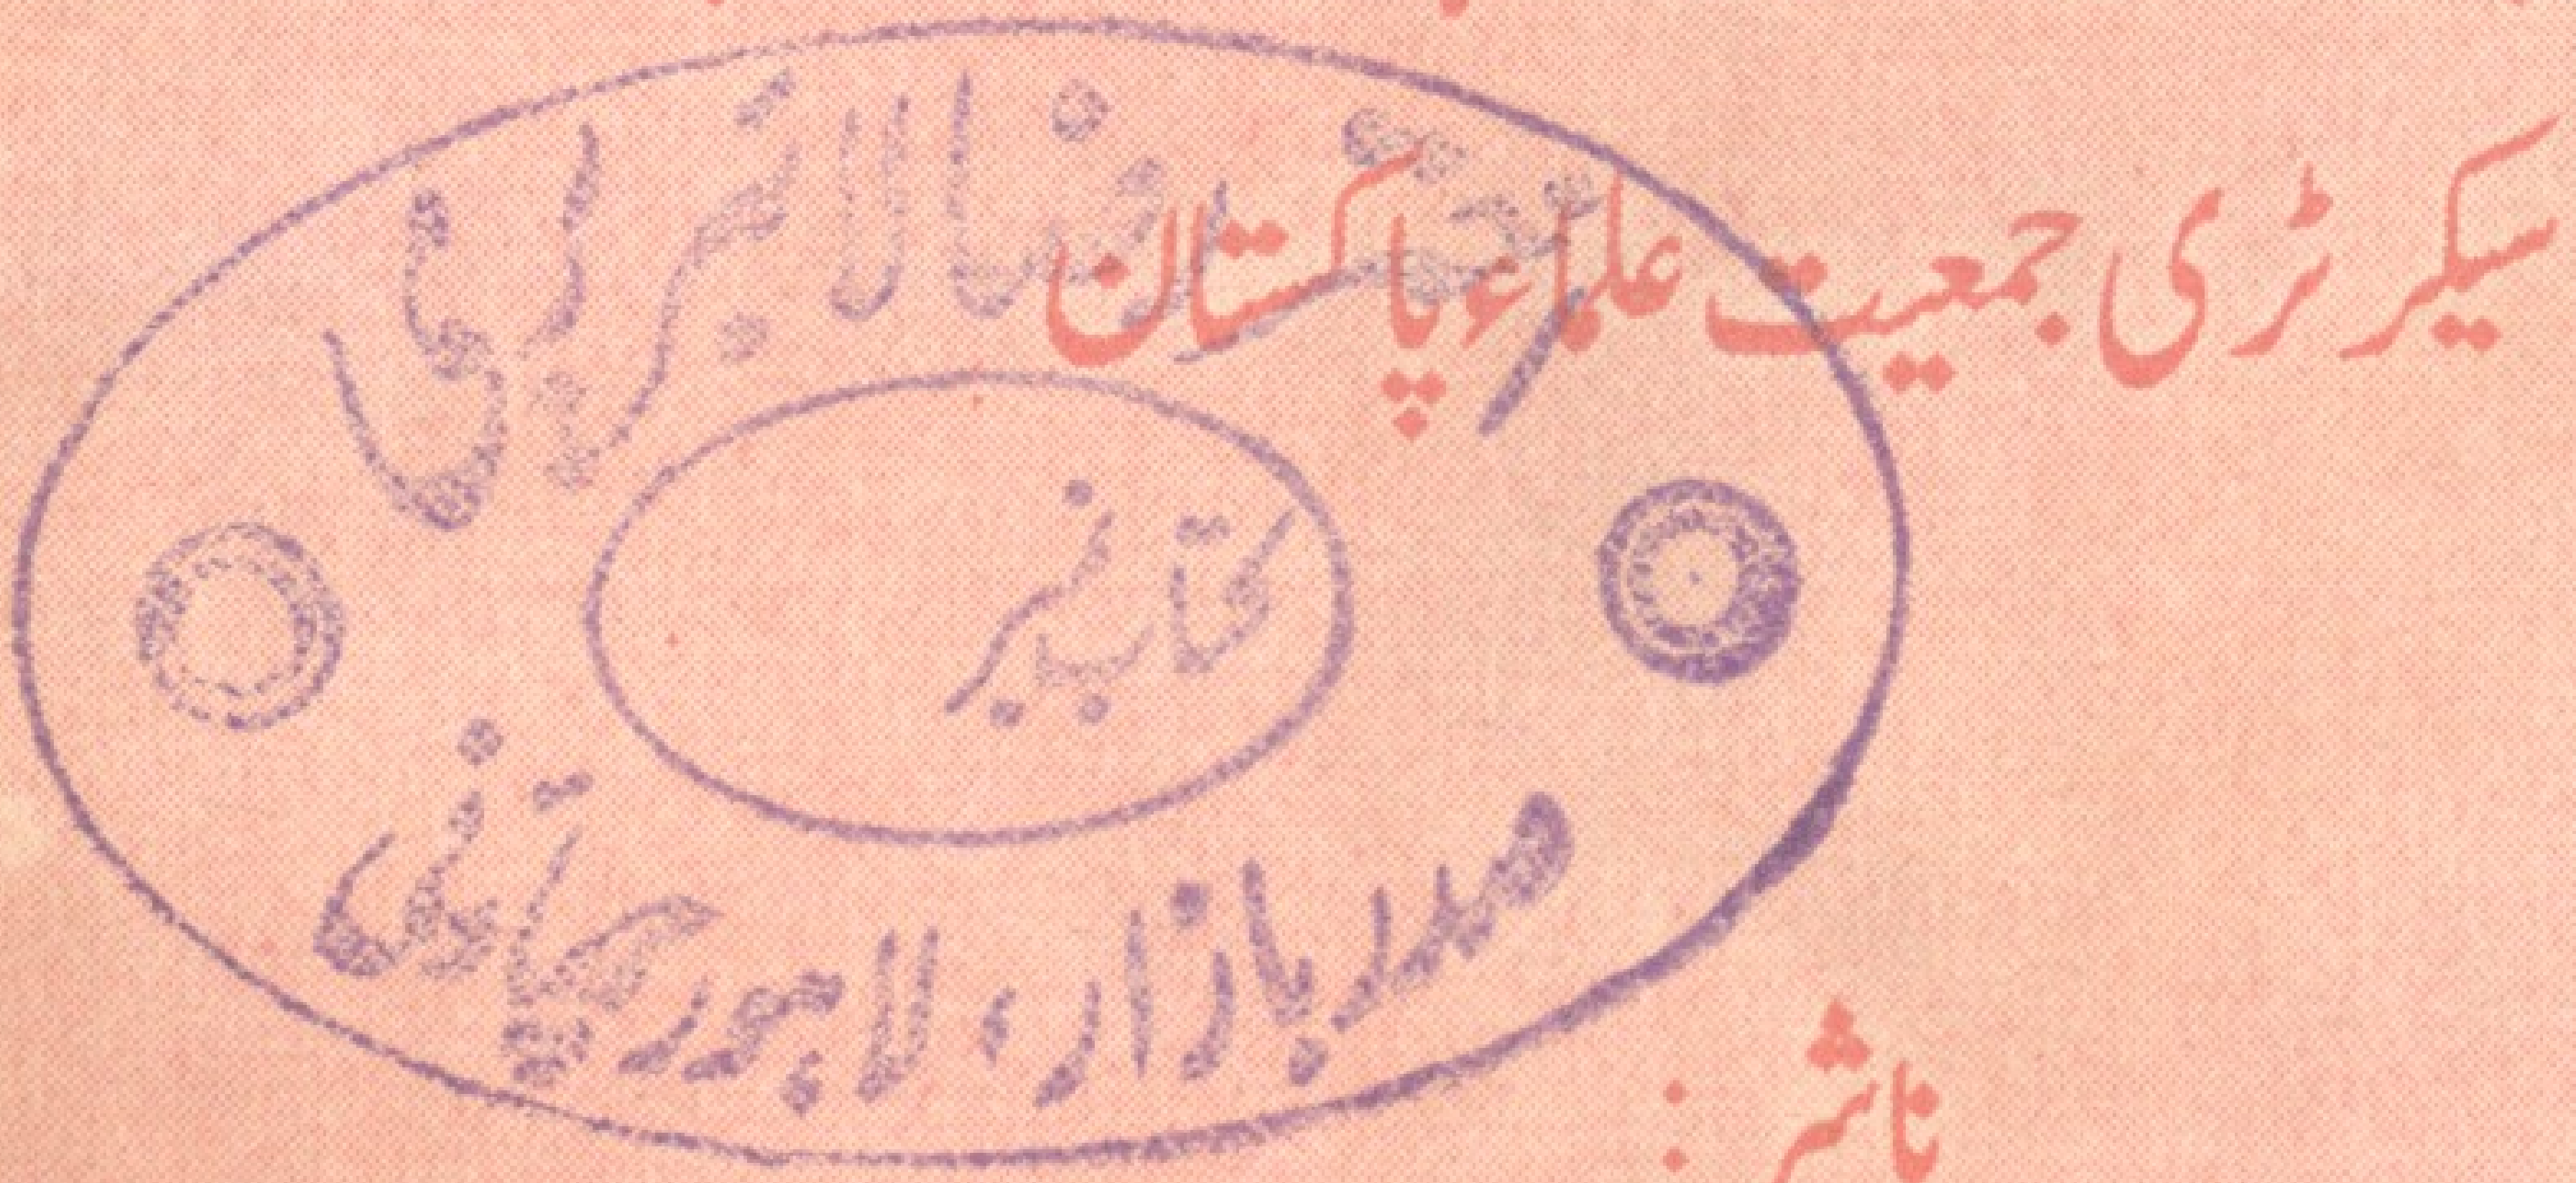 سیکرٹری جمعیت علماء پاکستان
رضا لائبریری
کتاب نمبر
صدر بازار، لاہور چھاؤنی
ناشر :